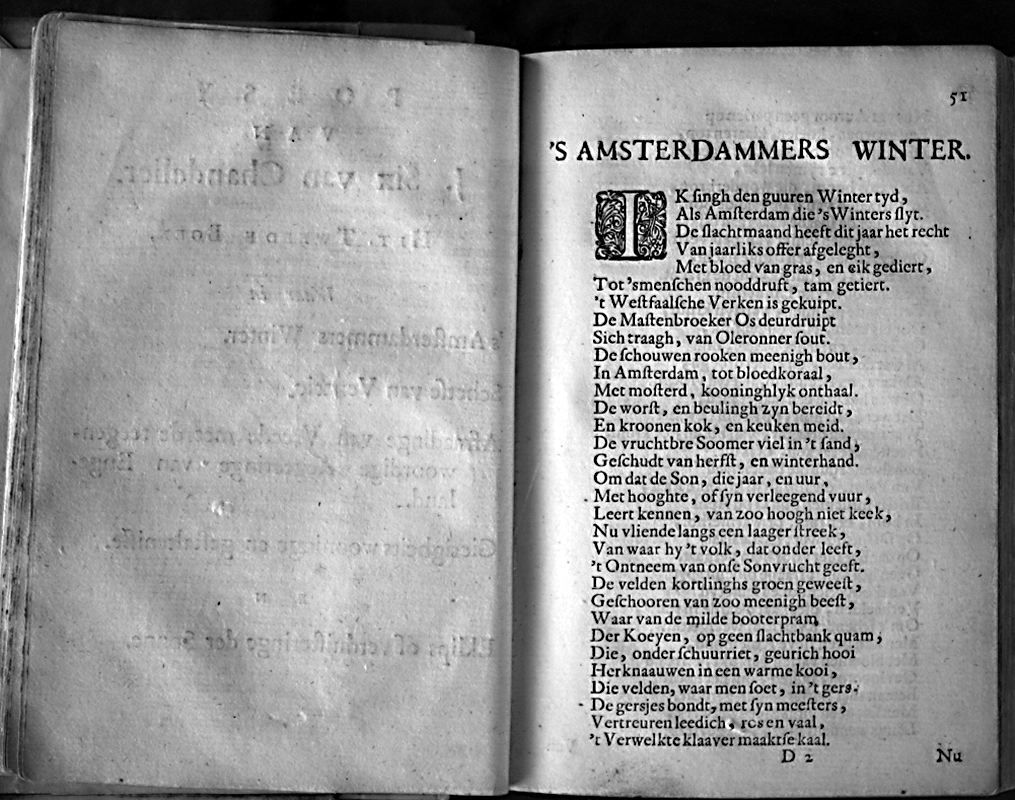 51
'S AMSTERDAMMERS WINTER.
IK singh den guuren Winter tyd,
Als Amsterdam die 's Winters slyt.
De slachtmaand heeft dit jaar het recht
Van jaarliks offer afgeleght,
Met bloed van gras, en eik gediert,
Tot 'smenschen nooddruft, tam getiert.
't Westfaalsche Verken is gekuipt.
De Mastenbroeker Os deurdruipt
Sich traagh, van Oleronner sout.
De schouwen rooken meenigh bout,
In Amsterdam, tot bloedkoraal,
Met mosterd, kooninghlyk onthaal.
De worst, en beulingh zyn bereidt,
En kroonen kok, en keuken meid.
De vruchtbre Soomer viel in 't sand,
Geschudt van herfst, en winterhand.
Om dat de Son, die jaar, en uur,
Met hooghte, of syn verleegend vuur,
Leert kennen, van zoo hoogh niet keek,
Nu vliende langs een laager streek,
Van waar hy 't volk, dat onder leeft,
't Ontneem van onse Sonvrucht geeft.
De velden kortlinghs groen geweest,
Geschooren van zoo meenigh beest,
Waar van de milde booterpram,
Der Koeyen, op geen slachtbank quam,
Die, onder schuurriet, geurich hooi
Herknaauwen in een warme kooi,
Die velden, waar men soet, in 't gers,
De gersjes bondt, met syn meesters,
Vertreuren leedich, ros en vaal,
't Verwelkte klaaver maaktse kaal.
D 2
Nu
P O E S Y
VAN
J. Six van Chandelier.
HET TWEEDE BOEK,
Waar in
's Amsterdammers Winter.
Schetse van Venecie.